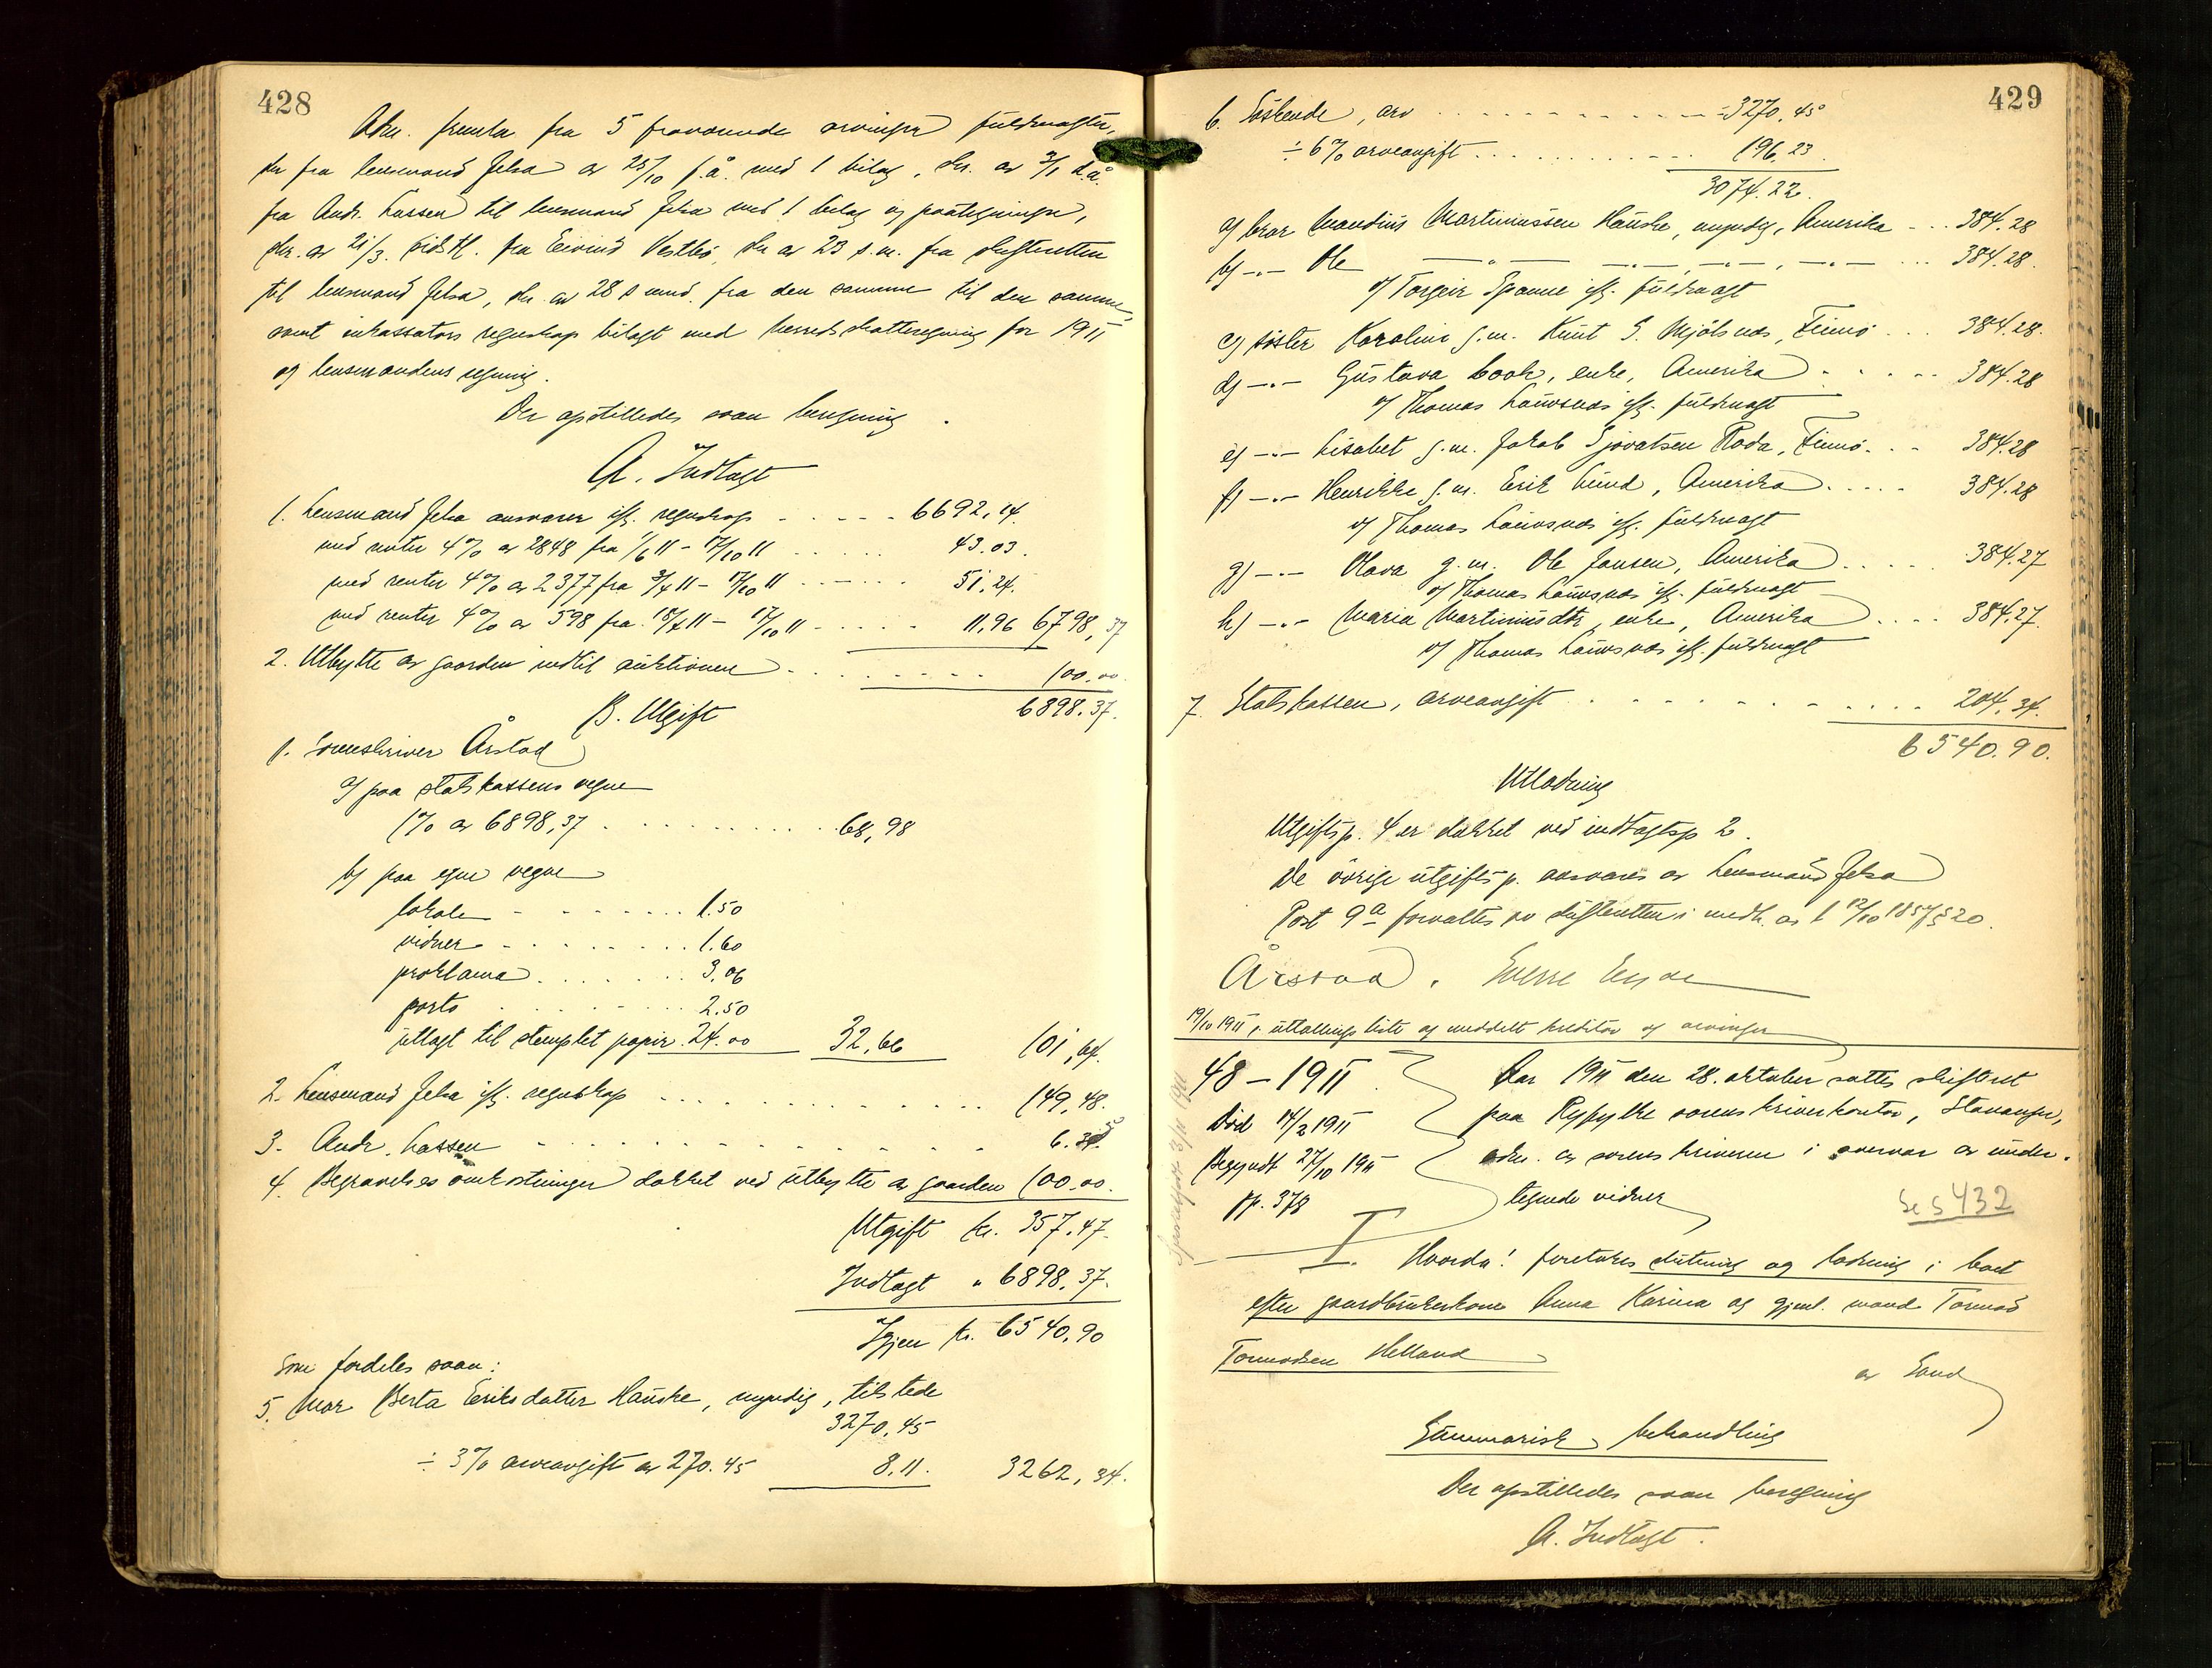 428
Adm. fremla fra 5 fraværende arvinger fuldmagter,
skr fra lensmand Jelsa av 25/10 f.å. med 1 bilag, skr. av 3/1 d.å.
fra Andr. Lassen til lensmand Jelsa med 1 bilag og paategninger,
skr. av 21/3. fra Eivind Vestbø, skr av 23 s.m. fra skifteretten
til lensmand Jelsa, skr. av 28 s mnd. fra den samme til den samme,
samt inkassators regnskap bilagt med herredsskatteregning for 1911
og lensmandens regning.
Der opstilledes saan beregning.
A. Indtægt
1. Lensmand Jelsa ansvarer ifl. regnskap - - - - - 6692,14.
med renter 4% av 2848 fra 1/6 11 - 17/10 11 ...... 43.03.
med renter 4% av 2377 fra 3/4 11 - 17/10 11 ....... 51.24.
med renter 4% av 598 fra 18/4 11 - 17/10 11 - .... 11,96 6798,37
2. Utbytte av gaarden indtil auktionen . ....... 100.00
6898.37.
B. Utgift
1. Sorenskriver Årstad
a) paa statskassens vegne
1% av 6898,37 ........... 68,98
b) paa egne vegne
lokale - ....... 1.50
vidner - ....... 1.60
proklama ...... 3.06
porto ...... 2.50
utlagt til stemplet papir. 24.00 32,66 101,64.
2. Lensmand Jelsa ifl. regnskap ............ 149,48.
3. Andr. Lassen - ........... 6.35
4. Begravelsesomkostninger dækket ved utbytte av gaarden 100.00.
Utgift kr. 357.47.
Indtægt " 6898.37.
Igjen kr. 6540,90
Som fordeles saan:
5. Mor Berta Eriksdatter Hauske, myndig, tilstede
3270,45
÷ 3% arveavgift av 270.45 8.11. 3262,34.
429
6. Søskende, arv ............ 3270,45
÷ 6% arveavgift ............ 196,23.
3074.22.
a) bror Mandius Martinussen Hauske, myndig, Amerika ... 384.28
b) -"- Ole -"- -"-, -"-, -"- ... 384.28.
v/ Torgeir Spanne ifl. fuldmagt
c) søster Karoline g.m. Knut S. Mjølsnes, Finnø ... 384.28.
d) -"- Gustava Cook, enke, Amerika ..... 384.28
v/ Thomas Lauvsnes ifl. fuldmagt
e) -"- Lisabet g.m. Jakob Sjovatsen Roda, Finnø. .. 384.28
f) -"- Henrikke g.m. Erik Lund, Amerika ..... 384.28
v/ Thomas Lauvsnes ifl. fuldmagt
g) -"- Olava g.m. Ole Jansen, Amerika ..... 384.27
v/ Thomas Lauvsnes ifl. fuldmagt
h) -"- Maria Martinusdtr, enke, Amerika .... 384.27.
v/ Thomas Lauvsnes ifl. fuldmagt
7. Statskassen, arveavgift ........... 204.34.
6540.90.
Utlodning
Utgiftsp. 4 er dækket ved indtægtsp 2.
De øvrige utgiftsp. ansvares av lensmand Jelsa
Post 9a forvaltes av skifteretten i medh. av l 12/10 1857 § 20.
Årstad. Sverre
19/10 1911, uttællingsliste og meddelt kreditor og arvinger
48 - 1911.
Død 14/2 1911
Begyndt 27/10 1911
pp. 378
Aar 1911 den 28. oktober sattes skifteret
paa Ryfylke sorenskriverkontor, Stavanger,
adm. av sorenskriveren i overvær av under-
tegnede vidner
Se s 432
I. Hvorda! foretokes slutning og lodning i boet
efter gaardbrukerkone Anna Karina og gjenl. mand Tormod
Tormodsen Helland
av Sand
Summarisk behandling
Der opstilledes saan beregning
A. Indtægt.